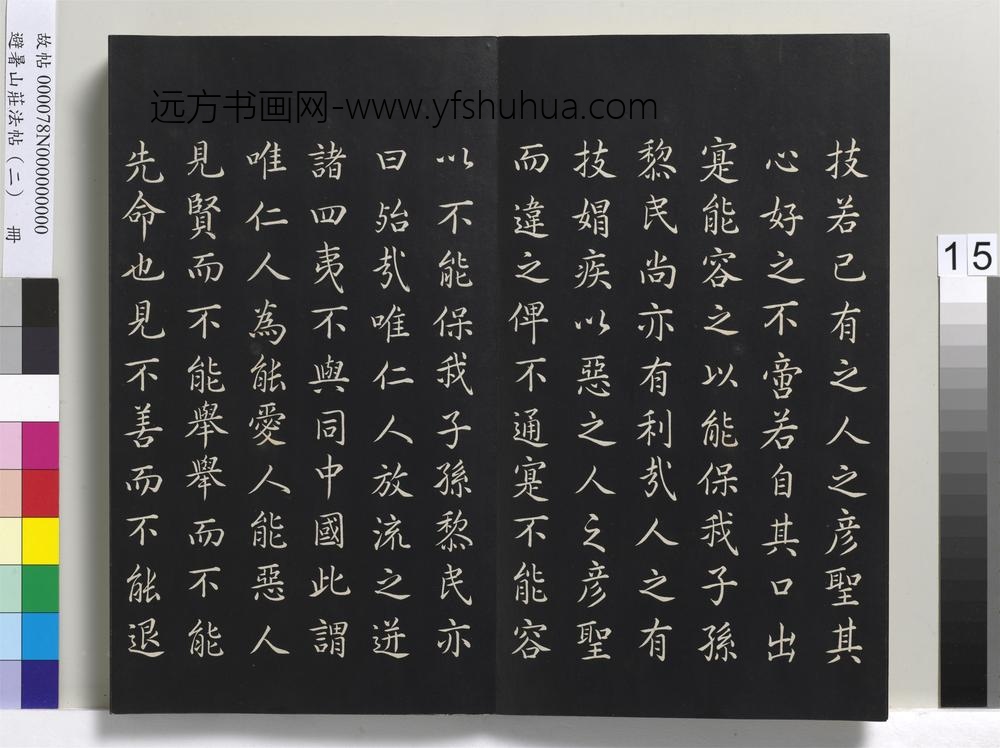 远方书画网-www.yfshuhua.com
技若己有之人之彦聖其
心好之不啻若自其口出
寔能容之以能保我子孫
黎民尚亦有利哉人之有
技媢疾以惡之人之彦聖
而違之俾不通寔不能容
以不能保我子孫黎民亦
曰殆哉唯仁人放流之迸
諸四夷不與同中國此謂
唯仁人為能愛人能惡人
見賢而不能舉舉而不能
先命也見不善而不能退
故帖 000078N000000000
避暑山莊法帖(二) 冊
15